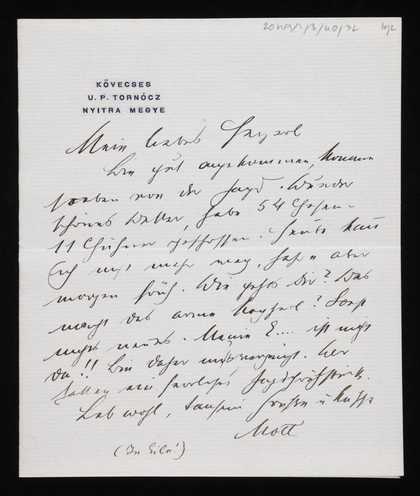 KÖVECSES
U. P. TORNÓCZ
NYITRA MEGYE
Mein liebes
Bin gut angekommen, komme
soeben von der Jagd. Wunder
schönes Wetter, habe 54 Hasen
11 Hühner geschossen. Heute kann
ich nicht mehr weg, fahre aber
morgen früh. Wie geht's Dir? Was
macht das arme ? Sonst
nichts neues. Meine E.... ist nicht
da!! Bin daher Wir
hatten ein herrliches Jagdfrühstück.
Leb wohl, tausend Grüße u Küsse
Mott
(In Eile!)